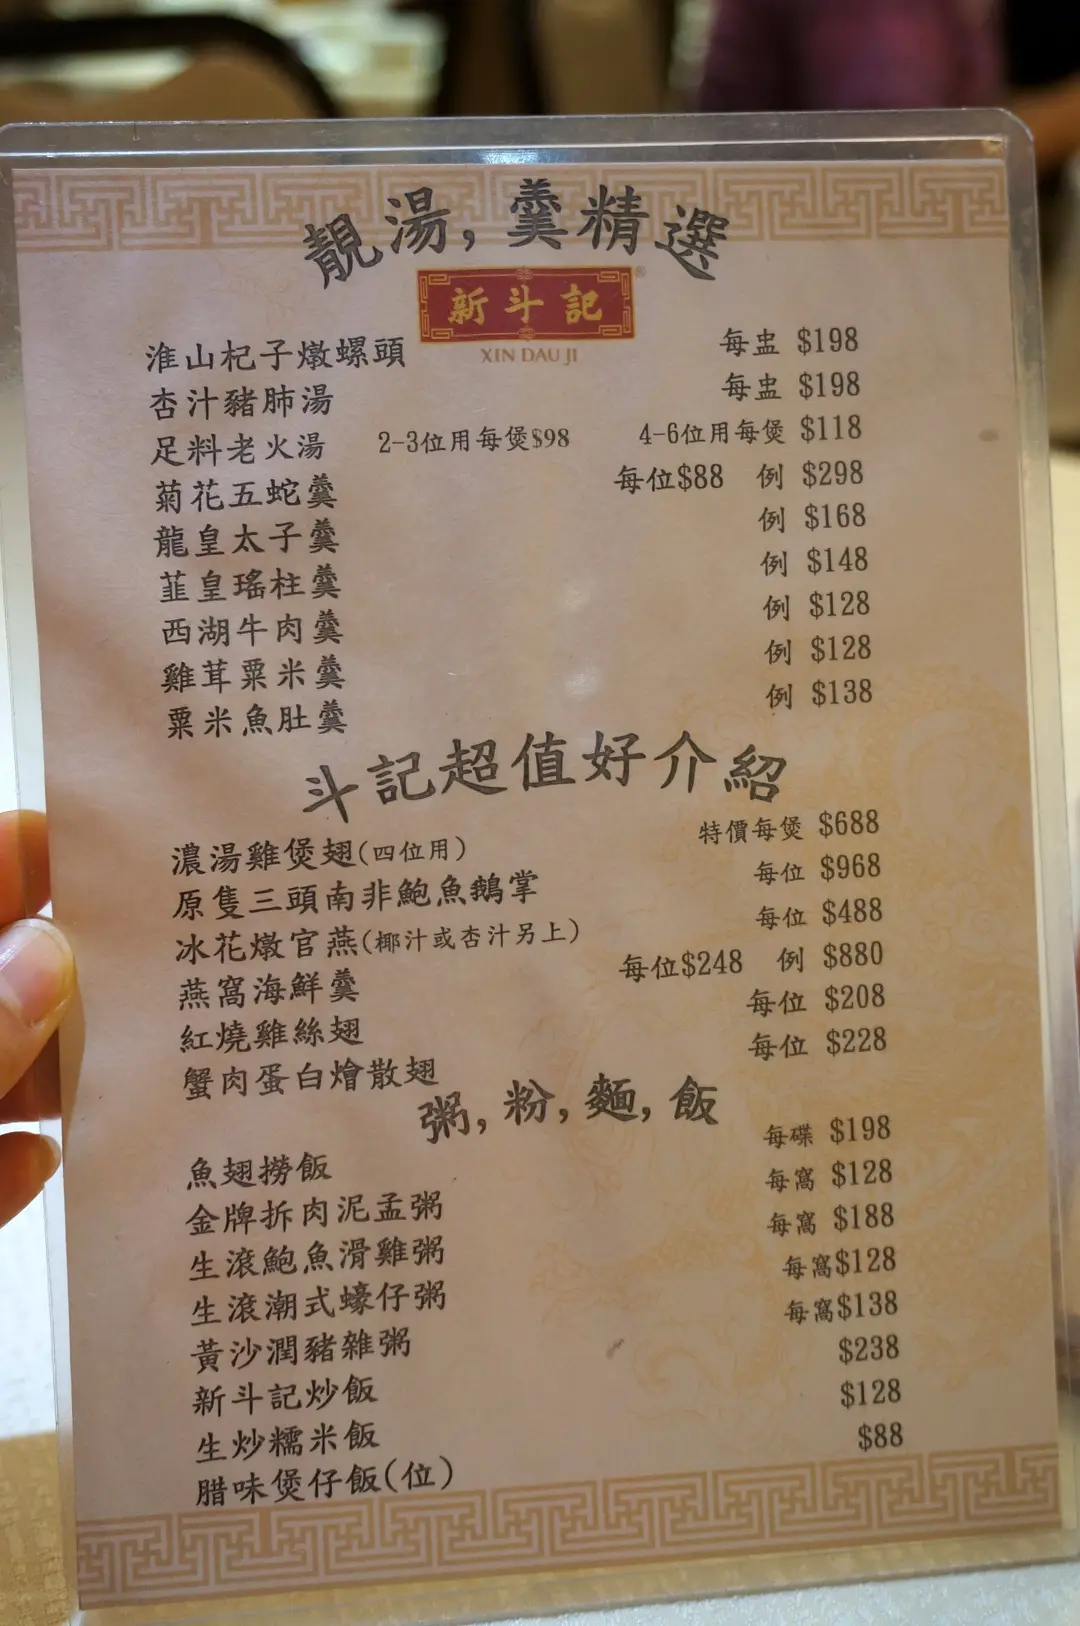 靚湯,羹精選
新斗記®
XIN DAU JI
淮山杞子燉螺頭 每盅 $198
杏汁豬肺湯 每盅 $198
足料老火湯 2-3位用每煲$98 4-6位用每煲 $118
菊花五蛇羹 每位$88 例 $298
龍皇太子羹 例 $168
韮皇瑤柱羹 例 $148
西湖牛肉羹 例 $128
雞茸粟米羹 例 $128
粟米魚肚羹 例 $138
斗記超值好介紹
濃湯雞煲翅(四位用) 特價每煲 $688
原隻三頭南非鮑魚鵝掌 每位 $968
冰花燉官燕(椰汁或杏汁另上) 每位 $488
燕窩海鮮羹 每位$248 例 $880
紅燒雞絲翅 每位 $208
蟹肉蛋白燴散翅 每位 $228
粥,粉,麵,飯
魚翅撈飯 每碟 $198
金牌拆肉泥孟粥 每窩 $128
生滾鮑魚滑雞粥 每窩 $188
生滾潮式蠔仔粥 每窩$128
黃沙潤豬雜粥 每窩$138
新斗記炒飯 $238
生炒糯米飯 $128
腊味煲仔飯(位) $88